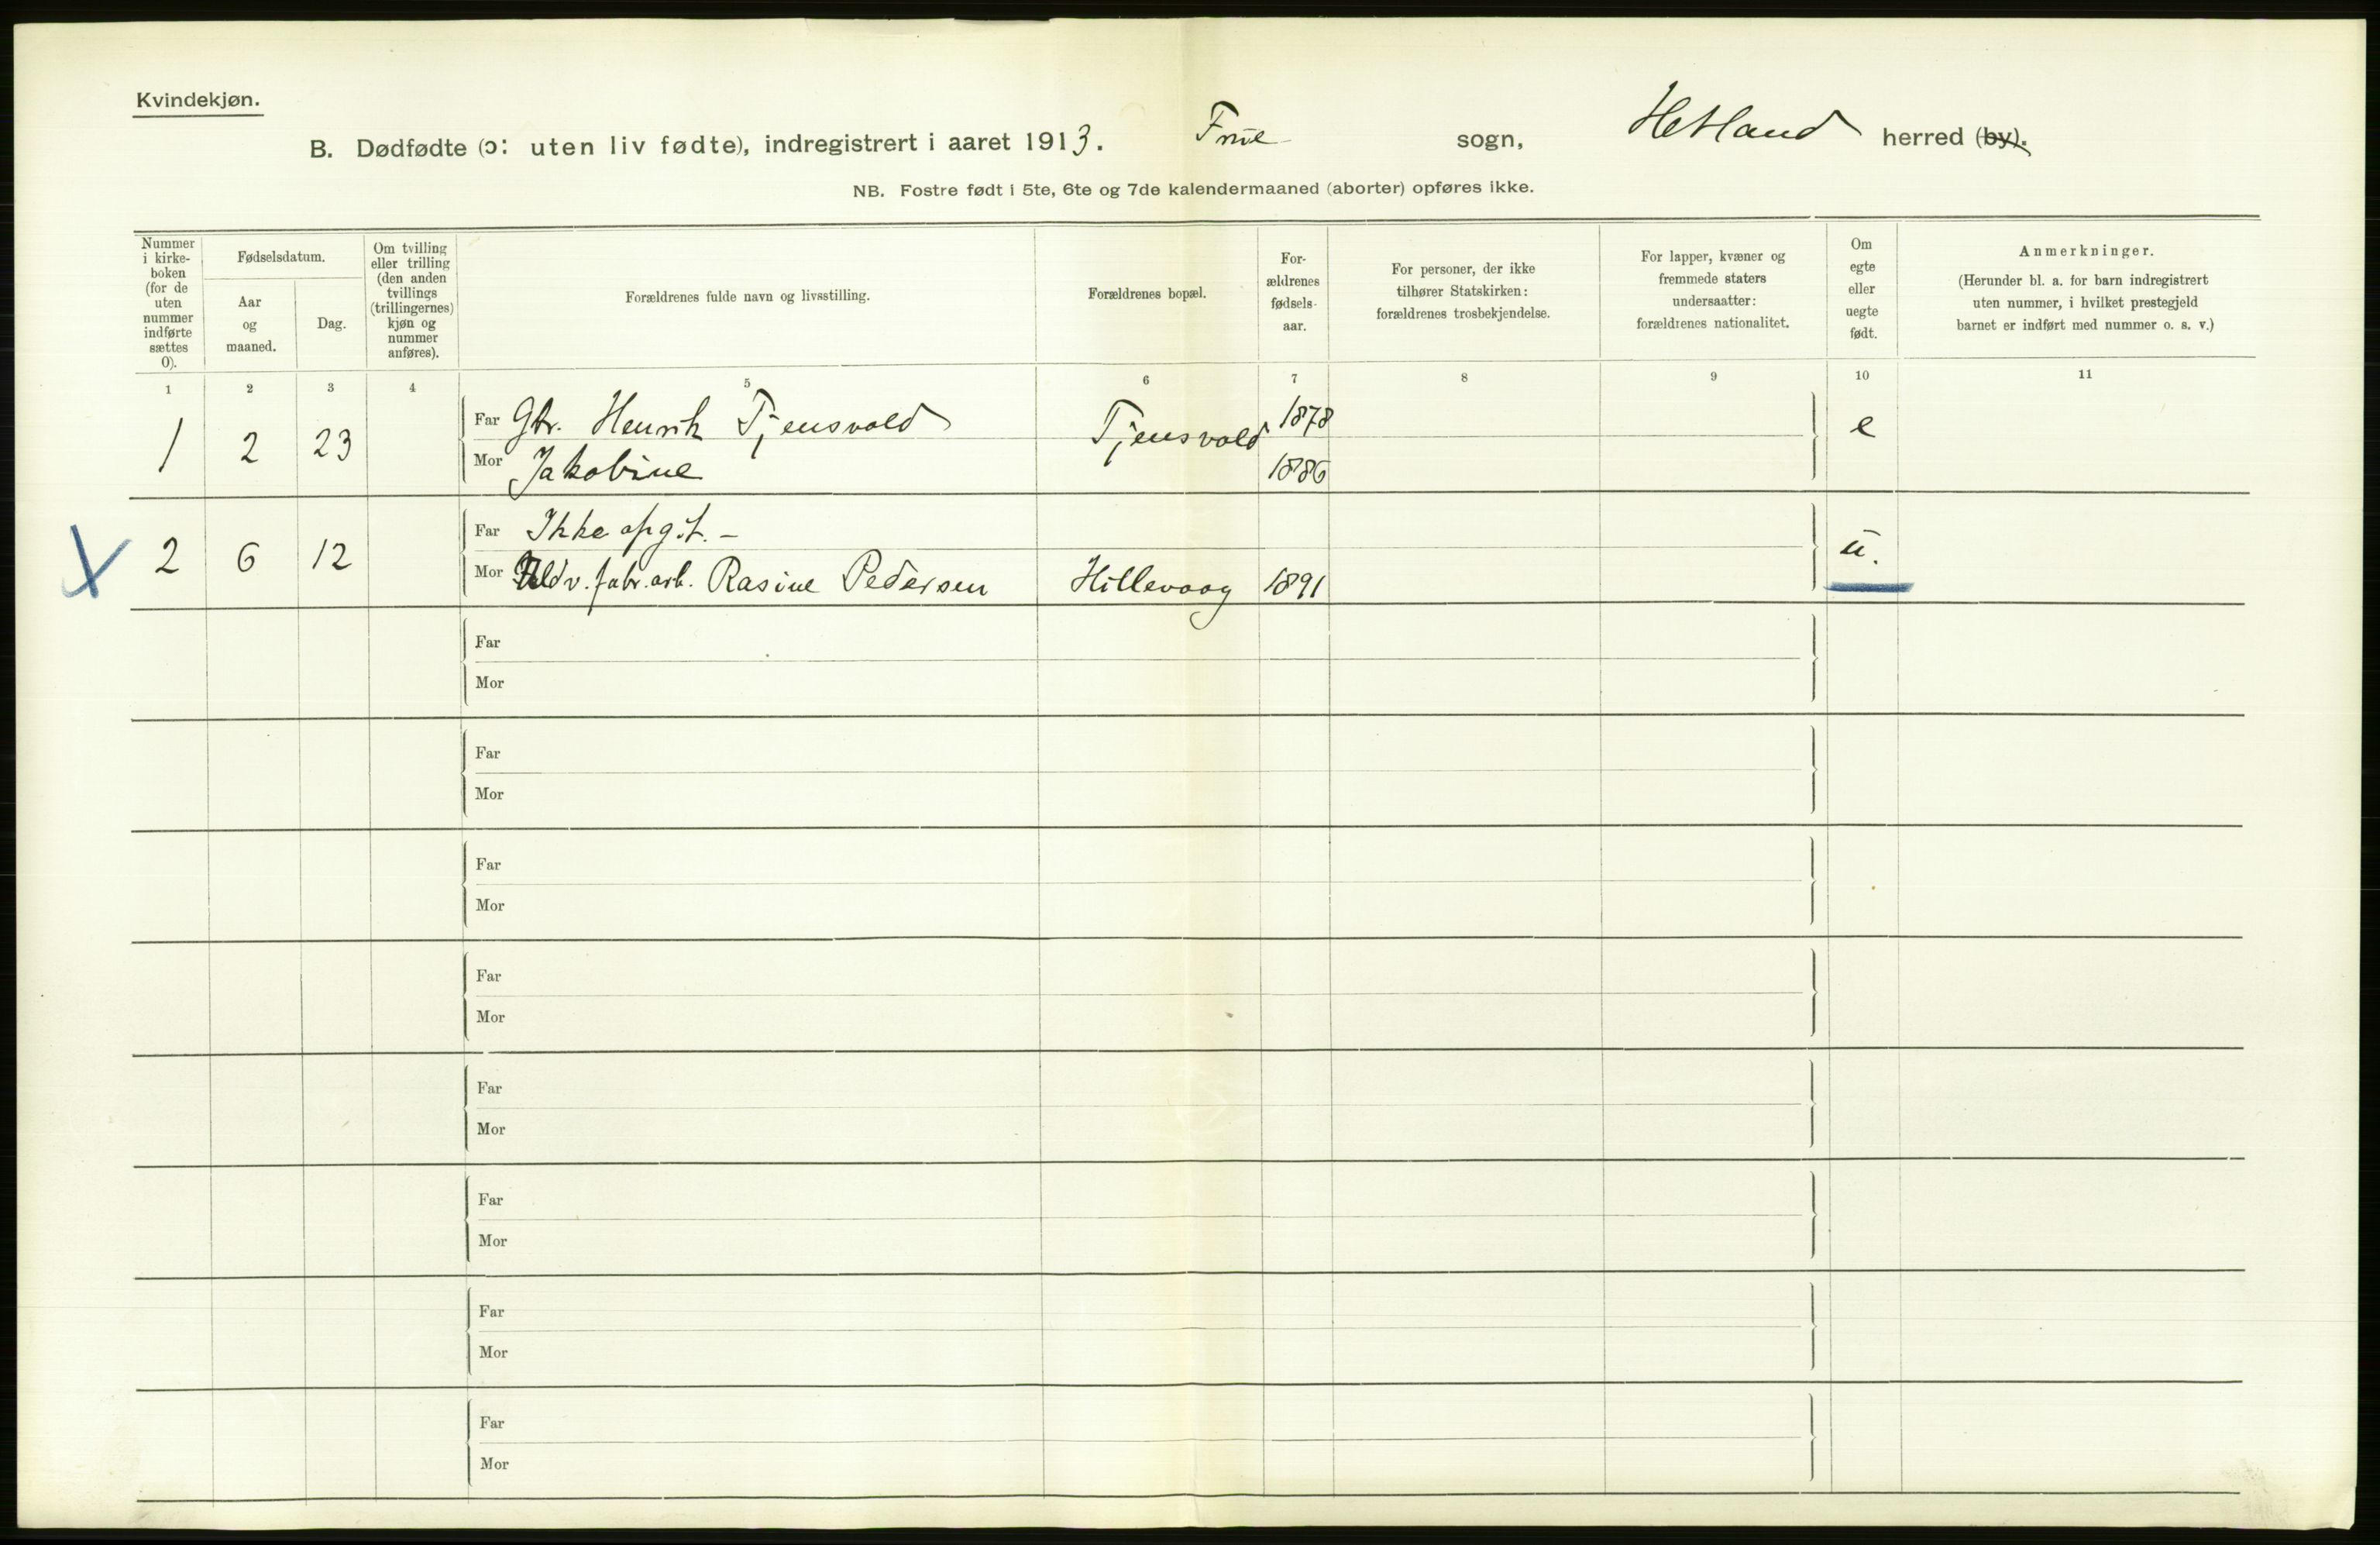 Kvindekjøn.
B. Dødfødte (ɔ: uten liv fødte), indregistrert i aaret 1913. Frue sogn, Hetland herred (by).
NB. Fostre født i 5te, 6te og 7de kalendermaaned (aborter) opføres ikke.
Nummer
i kirke-
boken
(for de
uten
nummer
indførte
sættes
0).
Fødselsdatum.
Aar
og
maaned.
Dag.
Om tvilling
eller trilling
(den anden
tvillings
(trillingernes)
kjøn og
nummer
anføres).
Forældrenes fulde navn og livsstilling.
Forældrenes bopæl.
For-
ældrenes
fødsels-
aar.
For personer, der ikke
tilhører Statskirken:
forældrenes trosbekjendelse.
For lapper, kvæner og
fremmede staters
undersaatter:
forældrenes nationalitet.
Om
egte
eller
uegte
født.
Anmerkninger.
(Herunder bl. a. for barn indregistrert
uten nummer, i hvilket prestegjeld
barnet er indført med nummer o. s. v.)
1 2 3 4 5 6 7 8 9 10 11
Far Gbr. Henrik Tjensvold 1878
1 2 23 Tjensvold e
Mor Jakobine 1886
Far Ikke opgit. -
2 6 12 u.
Mor v. fabr. arb. Rasine Pedersen Hillevaag 1891
Far
Mor
Far
Mor
Far
Mor
Far
Mor
Far
Mor
Far
Mor
Far
Mor
Far
Mor